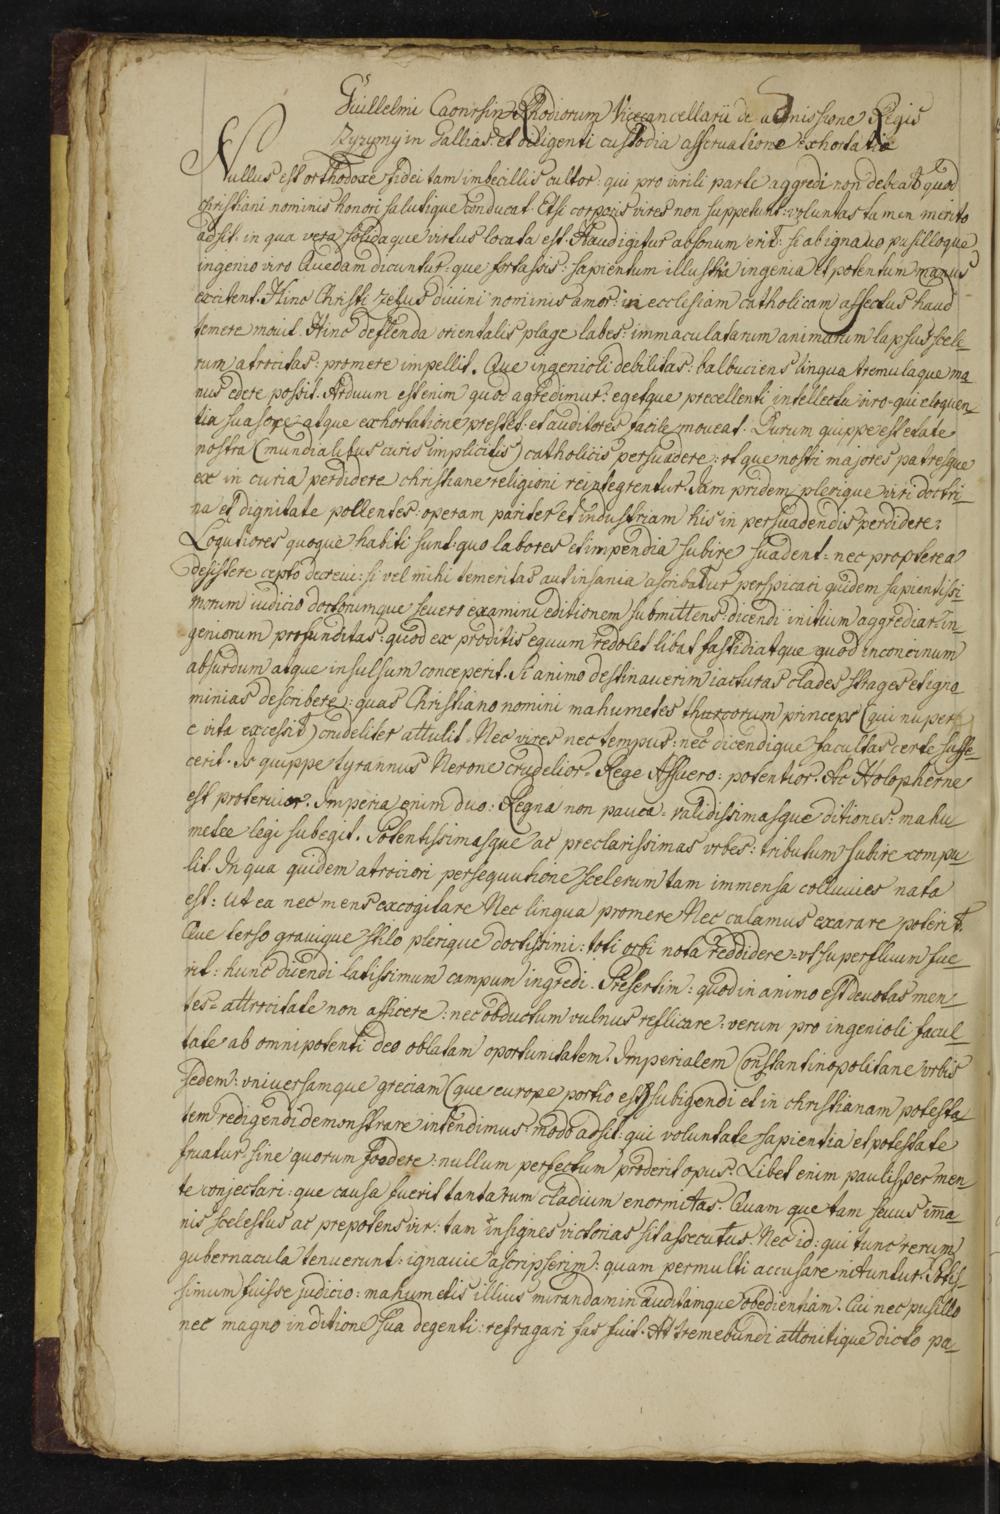 Guillelmi Caorsin Rhodiorum Vicecancellarii de admissione Regis
Zyzymy in Gallias: et diligenti custodia asseruatione exhortatio
Nullus est orthodoxe fidei tam imbecillis cultor: qui pro virili parte aggredi non debeat quod
christiani nominis honori salutique conducat. Etsi corporis vires non suppetunt: voluntas tamen merito
adsit: in qua vera solidaque virtus locata est. Haud igitur absonum erit: si ab ignauo pusilloque
ingenio viro Quedam dicuntur: que fortassis: sapientum illustria ingenia et potentum manus
excitent. Hinc Christi zelus diuini nominis amor: in ecclesiam catholicam affectus haud
temere mouit. Hinc deflenda orientalis plage labes: immaculatarum animarum lapsus scele-
rum atrocitas: promere impellit. Que ingenioli debilitas: balbuciens lingua tremulaque ma-
nus edere possit. Arduum est enim quod agredimur: egetque precellenti intellectu viro: qui eloquen-
tia suasoxe atque exhortatione presset: et auditores facile moueat. Durum quippe est etate
nostra (mundialibus curis implicitis) catholicis persuadere: ut que nostri majores patresque
ex in curia perdidere christiane religioni reintegrentur. Jam pridem plerique viri doctri-
na et dignitate pollentes: operam pariter et industriam his in persuadendis perdidere:
Loqutiores quoque habiti sunt: quo labores et impendia subire suadent: nec propterea
desistere cepto decreui: si vel mihi temeritas aut insania ascribatur perspicari quidem sapientissi-
morum iudicio doctorumque seuero examini editionem submittens: dicendi initium aggrediar: in-
geniorum profunditas: quod ex proditis equum redolet libat fastidiatque quod inconcinum
absurdum atque insulsum conceperit. Si animo destinauerim iacturas clades strages et igno-
minias describere: quas Christiano nomini mahumetes thurcorum princeps (qui nuper
e vita excessit) crudeliter attulit. Nec vires nec tempus: nec dicendique facultas certe suffe-
cerit. Is quippe tyrannus Nerone crudelior. Rege Assuero: potentior. Ac Holopherne
est proteruior. Imperia enim duo: Regna non pauca: validissimasque ditiones: mahu
metee legi subegit. Potentissimasque ac preclarissimas vrbes: tributum subire compu-
lit. In qua quidem atrociori persequutione scelerum tam immensa colluuies nata
est: ut ea nec mens excogitare Nec lingua promere Nec calamus exarare poterit.
Que terso grauique stilo plerique doctissimi: toti orbi nota reddidere: vt superfluum fue-
rit: hunc dicendi latissimum campum ingredi. Presertim: quod in animo est deuotas men-
tes: attrocitate non afficere: nec obductum vulnus reflicare: verum pro ingenioli facul-
tate ab omnipotenti deo oblatam oportunitatem. Imperialem Constantinopolitane vrbis
sedem: vniuersamque greciam (que europe portio est) subigendi et in christianam potesta-
tem redigendi demonstrare intendimus: modo adsit: qui voluntate sapientia et potestate
fruatur: sine quorum foedere: nullum perfectum proderit opus. Libet enim paulisper men-
te conjectari: que causa fuerit tantarum cladium enormitas. Quam que tam seuus ima-
nis scelestus ac prepotens vir: tam insignes victorias sit assecutus. Nec id: qui tunc rerum
gubernacula tenuerunt: ignauie ascripserim: quam permulti accusare nituntur. Potis-
simum fuisse judicio: mahumetis illius mirandam inauditamque obedientiam. Cui nec pusillo
nec magno in ditione sua degenti: refragari fas fuit. At tremebundi attonitique dicto pa-